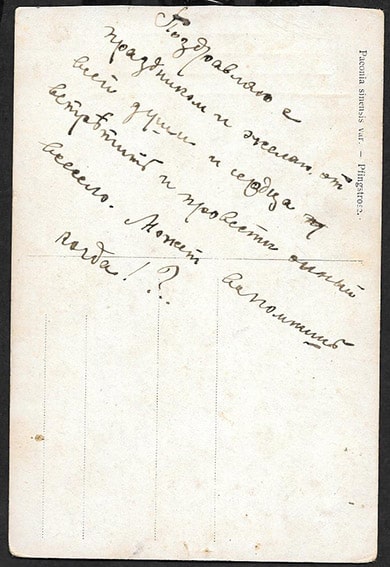 Поздравляю с
праздником и желаю отъ
всей души и сердца
встрѣтить и провести оный
весело. Может вспомнишь
когда!??
Paeonia sinensis var. — Pfingstrose.